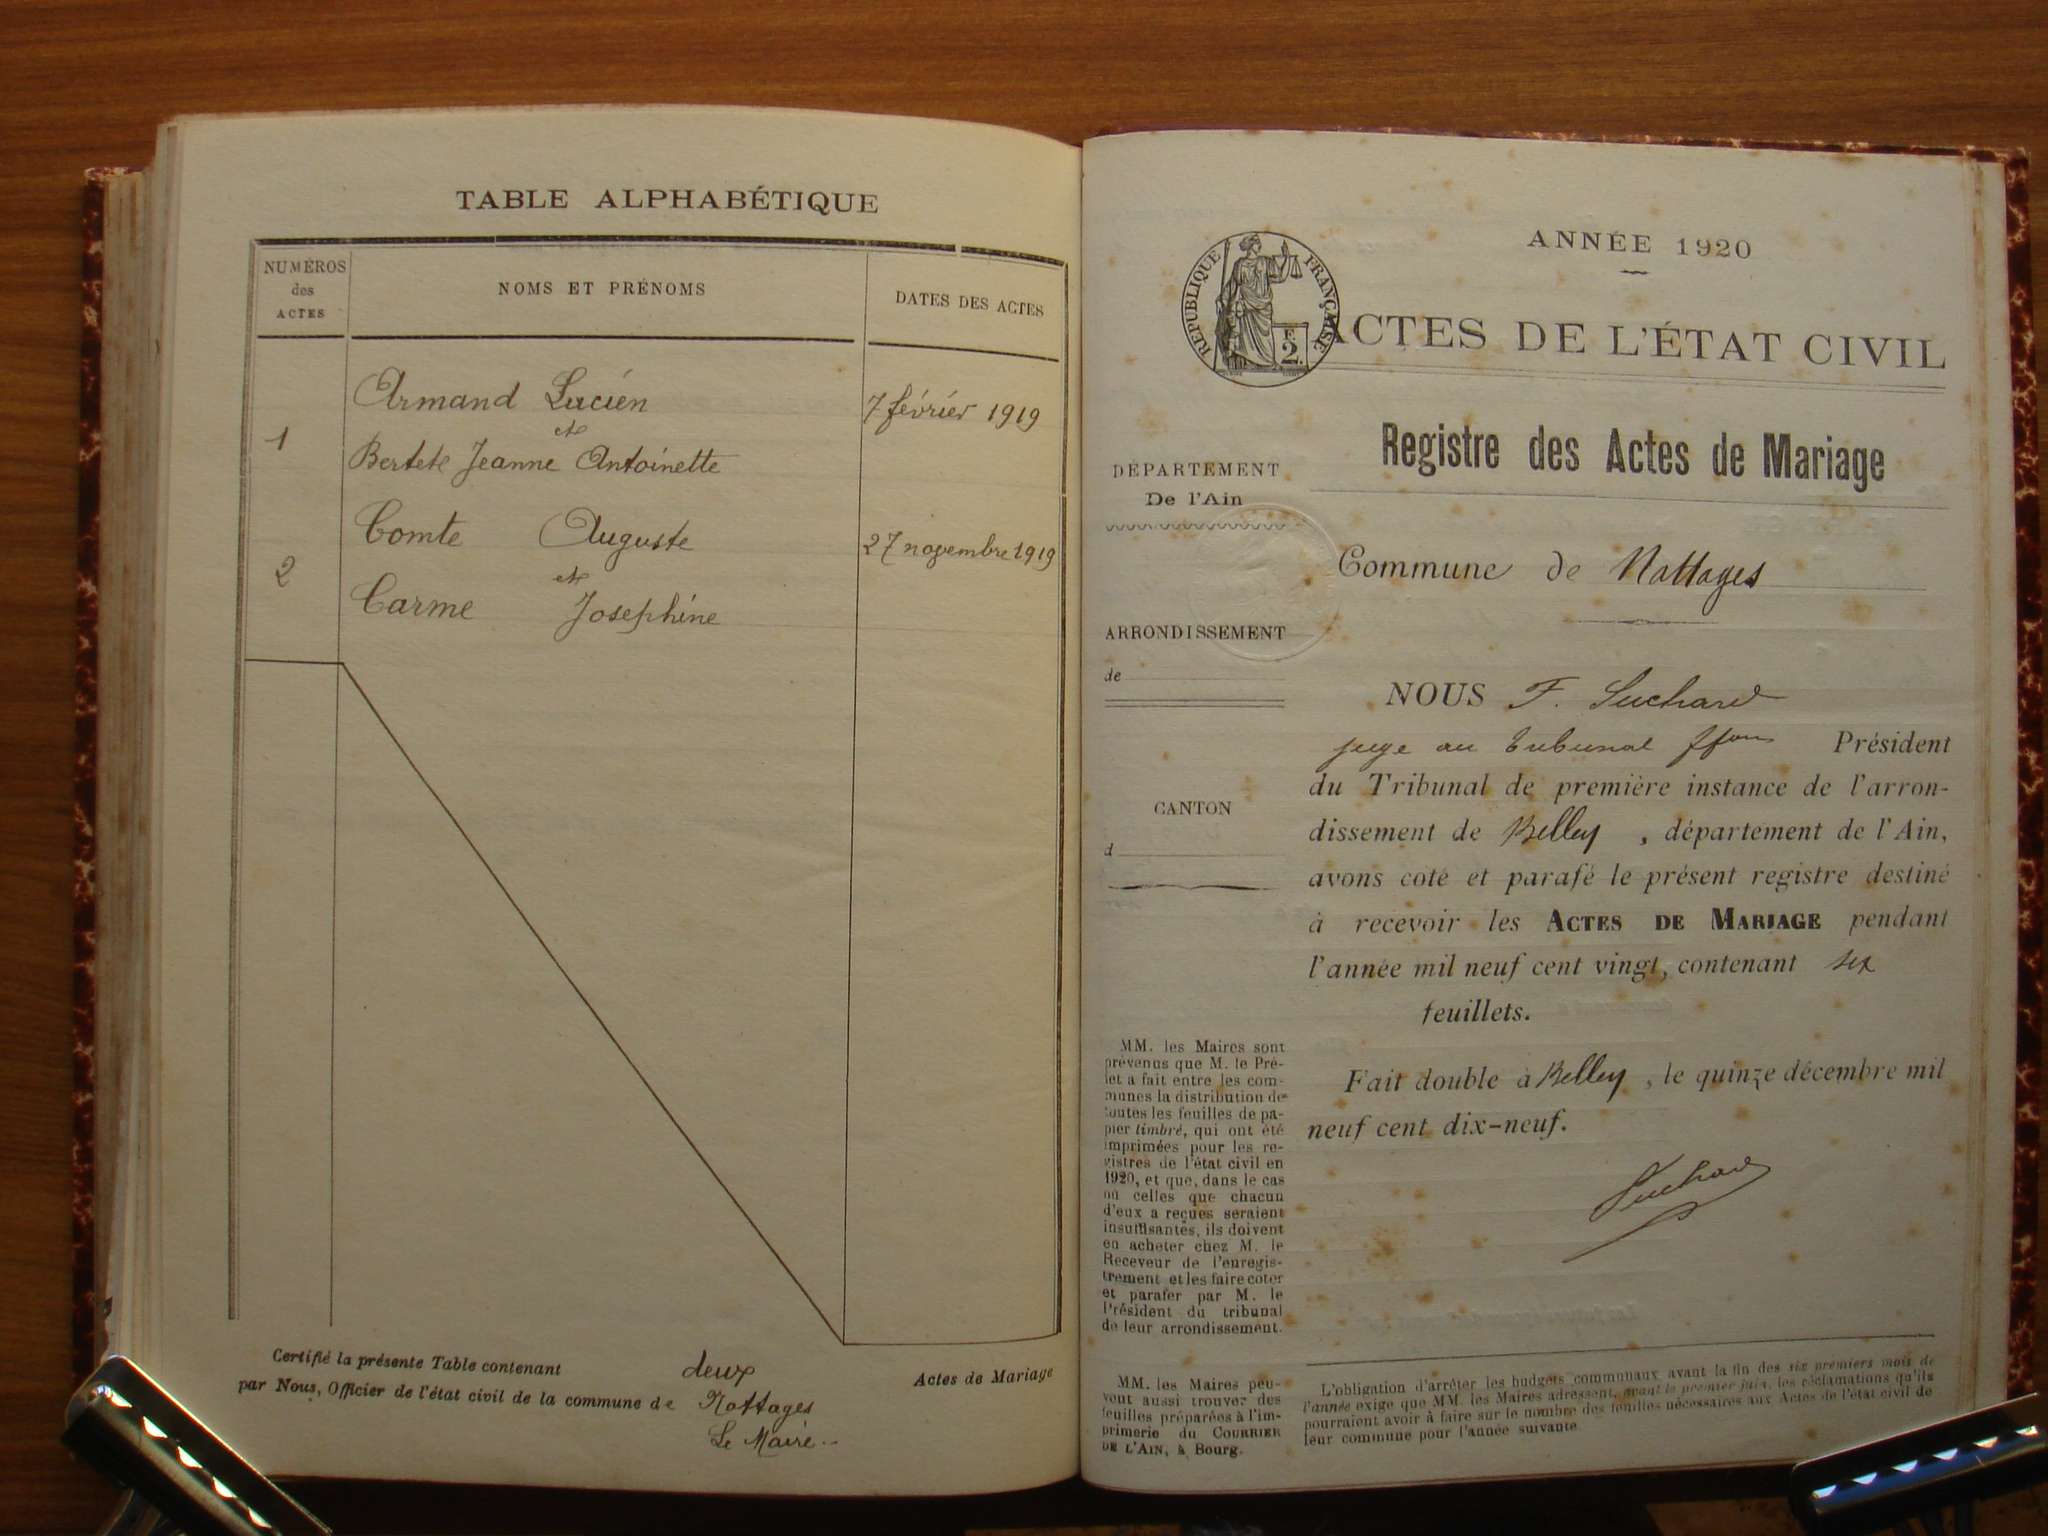 TABLE ALPHABÉTIQUE
NUMÉROS
des
ACTES
NOMS ET PRÉNOMS
DATES DES ACTES
Armand Lucien
7 février 1919
et
1
Bertet Jeanne Antoinette
Comte Auguste
27 novembre 1919
et
2
Carme Josephine
Certifié la présente Table contenant deux Actes de Mariage
par Nous, Officier de l'état civil de la commune de Nattages
Le Maire
ANNÉE 1920
RÉPUBLIQUE FRANÇAISE
F.
2
ACTES DE L'ÉTAT CIVIL
Registre des Actes de Mariage
DÉPARTEMENT
De l'Ain
Commune de Nattages
ARRONDISSEMENT
de
CANTON
d
NOUS F. Suchard
juge au tribunal ffons Président
du Tribunal de première instance de l'arron-
dissement de Belley, département de l'Ain,
avons coté et parafé le présent registre destiné
à recevoir les ACTES DE MARIAGE pendant
l'année mil neuf cent vingt, contenant six
feuillets.
Fait double à Belley, le quinze décembre mil
neuf cent dix-neuf.
Suchard
MM. les Maires sont
prévenus que M. le Pré-
fet a fait entre les com-
munes la distribution de
toutes les feuilles de pa-
pier timbré, qui ont été
imprimées pour les re-
gistres de l'état civil en
1920, et que, dans le cas
où celles que chacun
d'eux a reçues seraient
insuffisantes, ils doivent
en acheter chez M. le
Receveur de l'enregis-
trement et les faire coter
et parafer par M. le
Président du tribunal
de leur arrondissement.
MM. les Maires peu-
vent aussi trouver des
feuilles préparées à l'im-
primerie du COURRIER
DE L'AIN, à Bourg.
L'obligation d'arrêter les budgets communaux avant la fin des six premiers mois de
l'année exige que MM. les Maires adressent, avant le premier juin, les réclamations qu'ils
pourraient avoir à faire sur le nombre des feuilles nécessaires aux Actes de l'état civil de
leur commune pour l'année suivante.